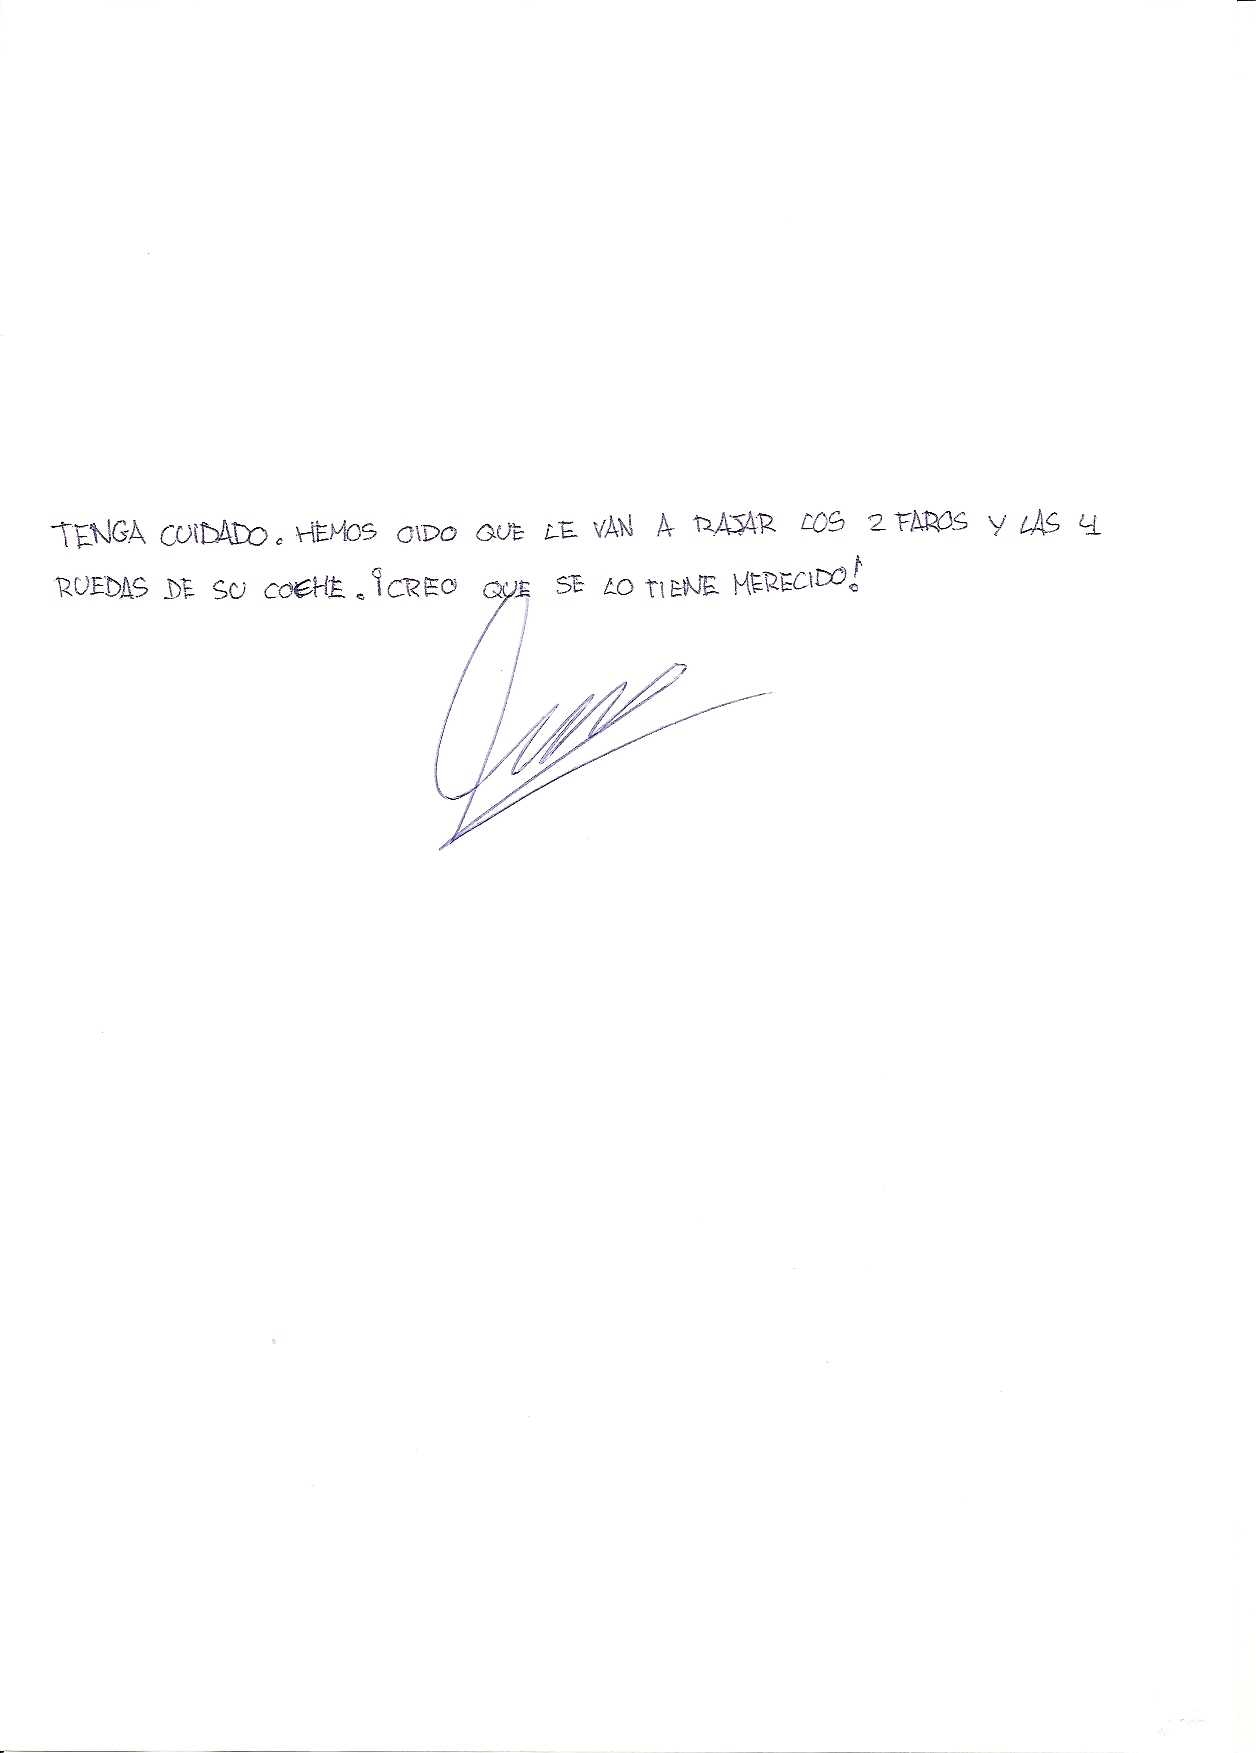 TENGA CUIDADO. HEMOS OIDO QUE LE VAN A RAJAR LOS 2 FAROS Y LAS 4
RUEDAS DE SU COCHE. ¡CREO QUE SE LO TIENE MERECIDO!